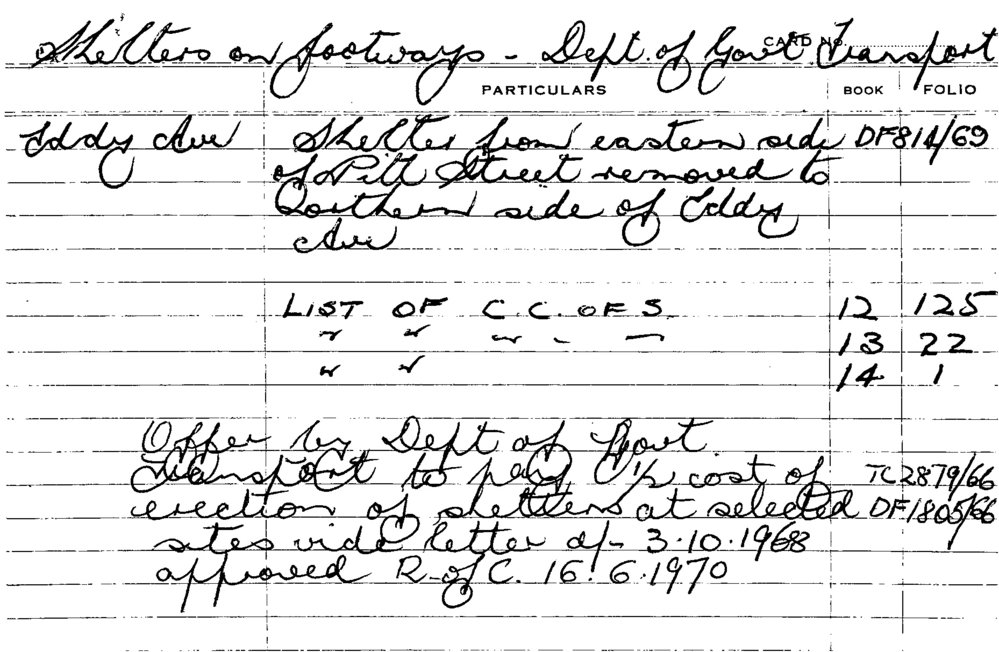 CARD No.
Shelters on footways - Dept. of Govt Transport
PARTICULARS BOOK FOLIO
Eddy Ave Shelter from eastern side DF814/69
of Pitt Street removed to
Northern side of Eddy
Ave
LIST OF C.C. OF S 12 125
" " " - " 13 22
" " 14 1
Offer by Dept of Govt.
Transport to pay 1/2 cost of TC2879/66
erection of shelters at selected DF1805/66
sites vide letter d/- 3.10.1968
approved R. of C. 16.6.1970